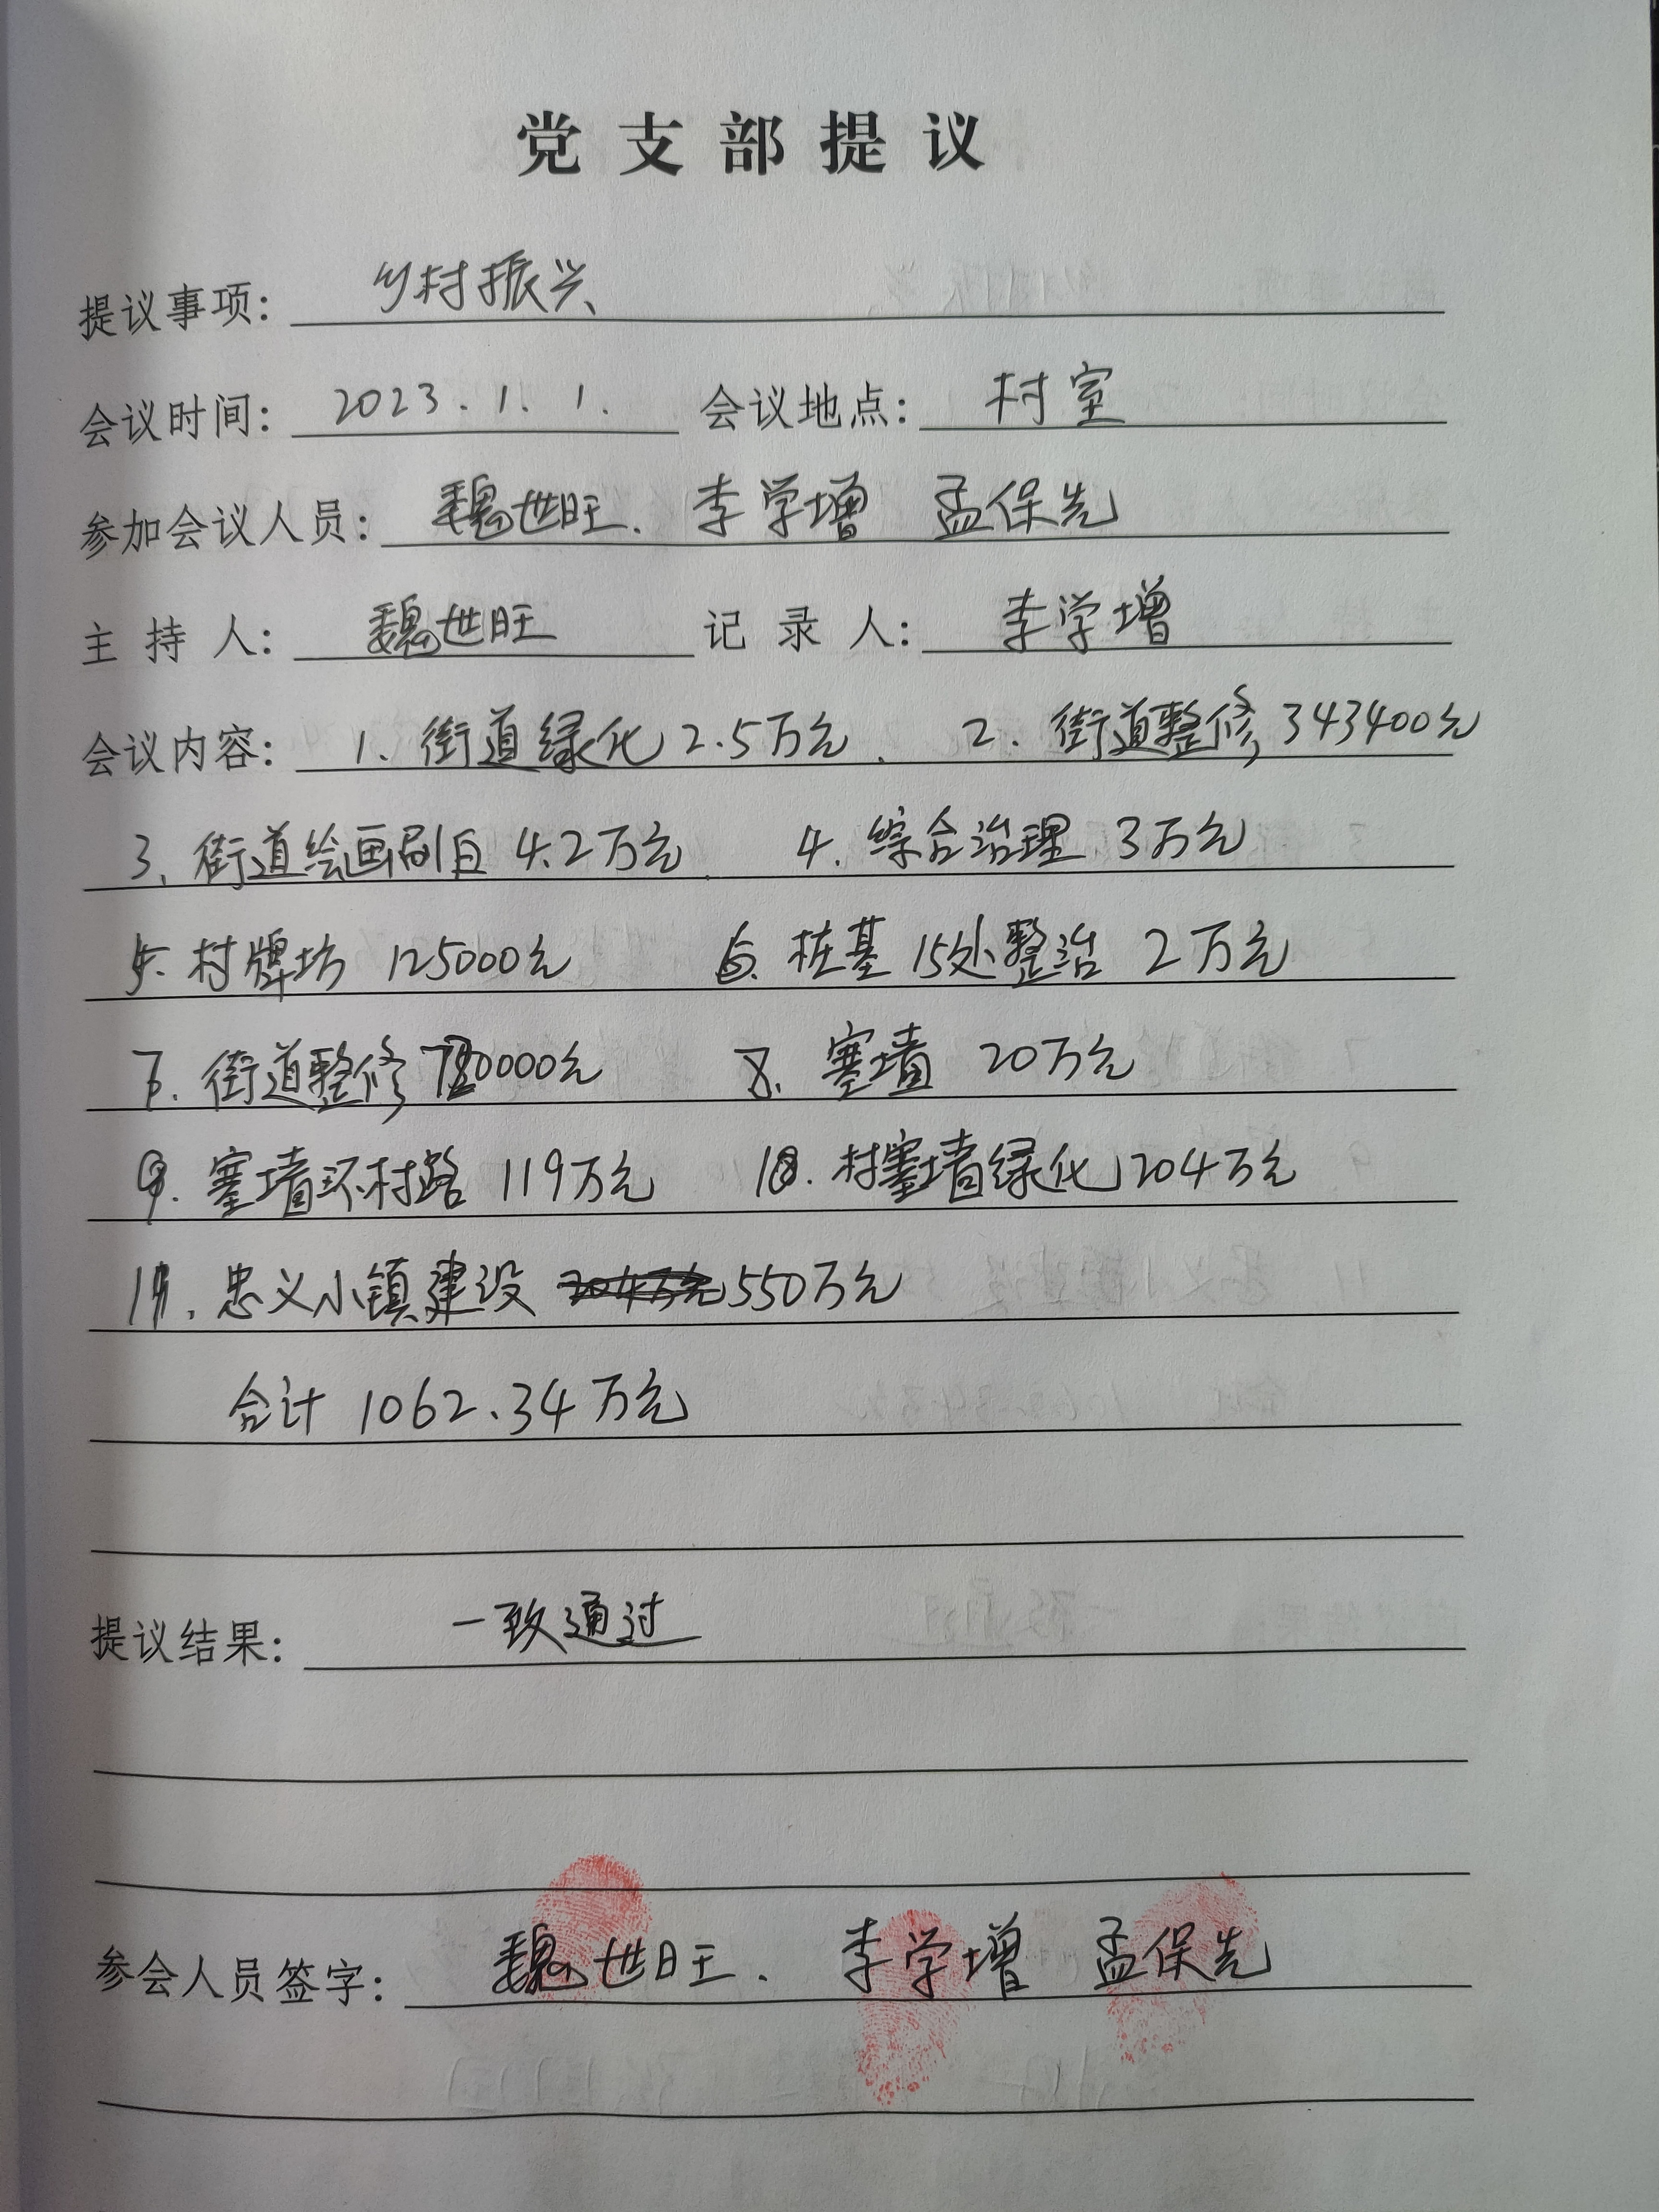 党支部提议
提议事项: 乡村振兴
会议时间: 2023.1.1. 会议地点: 村室
参加会议人员: 魏世旺. 李学增 孟保先
主持人: 魏世旺 记录人: 李学增
会议内容: 1、街道绿化2.5万元、 2. 街道整修343400元
3、街道绘画刷白4.2万元. 4. 综合治理 3万元
5. 村牌坊 125000元 6. 桩基15处整治 2万元
7. 街道整修 元 8. 寨墙 20万元
9. 寨墙环村路 119万元 10. 村寨墙绿化204万元
11. 忠义小镇建设 204万元 550万元
合计 1062.34万元
提议结果: 一致通过
参会人员签字: 魏世旺. 李学增 孟保先